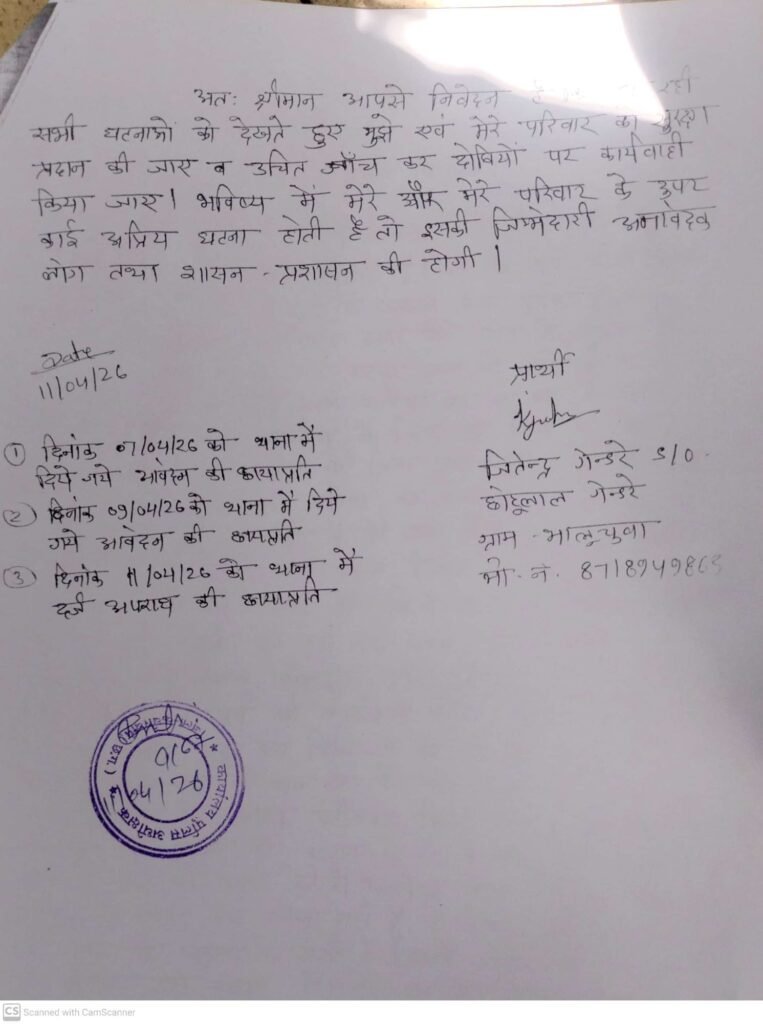 अतः श्रीमान आपसे निवेदन है रही
सभी घटनाओं को देखते हुए मुझे एवं मेरे परिवार को सुरक्षा
प्रदान की जाए व उचित जाँच कर दोषियों पर कार्यवाही
किया जाए। भविष्य में मेरे और मेरे परिवार के उपर
कोई अप्रिय घटना होती है तो इसकी जिम्मेदारी अनावेदक
लोग तथा शासन-प्रशासन की होगी।
Date
11/04/26
प्रार्थी
① दिनांक 07/04/26 को थाना में
दिये गये आवेदन की छायाप्रति
② दिनांक 09/04/26 को थाना में दिये
गये आवेदन की छायाप्रति
③ दिनांक 11/04/26 को थाना में
दर्ज अपराध की छायाप्रति
जितेन्द्र गेन्डरे S/O.
छोटूलाल गेन्डरे
ग्राम - भालूचुवा
मो. नं. 8718949863
कार्यालय पुलिस अधीक्षक
(छ.ग.)
04/26
CS Scanned with CamScanner